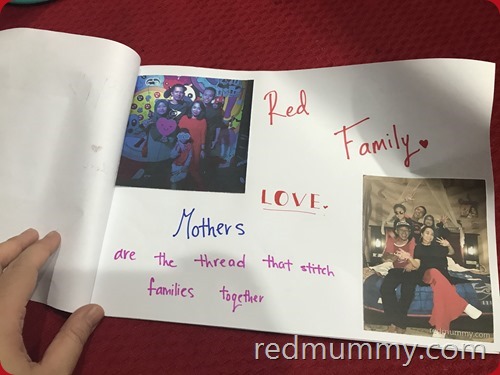 Red
Family
LOVE.
Mothers
are the thread that stitch
families together
redmummy.com
redmummy.com